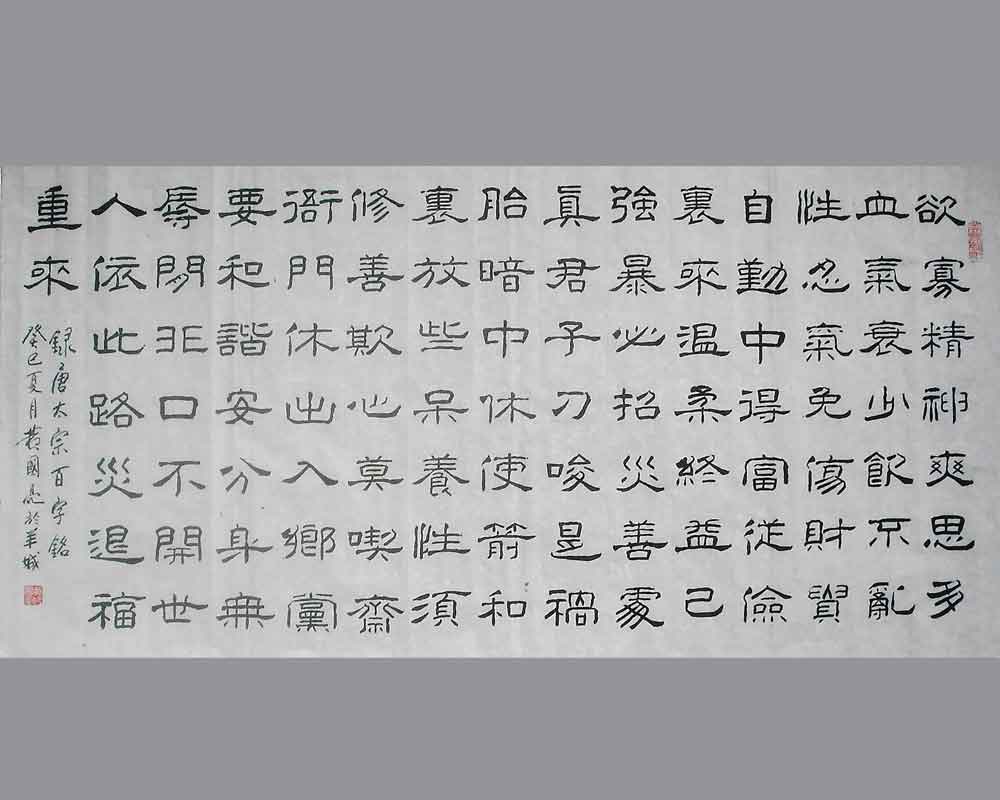 欲寡精神爽思多
血氣衰少飲不亂
性忍氣免傷財貴
自勤中得富從儉
裏來溫柔終益己
強暴必招災善處
眞君子刀唆是禍
胎暗中休使箭和
裏放些呆養性須
修善欺心莫喫齋
衙門休出入鄉黨
要和諧安分身無
辱閑非口不開世
人依此路災退福
重來
録唐太宗百字銘
癸巳夏月黃國亮於羊城